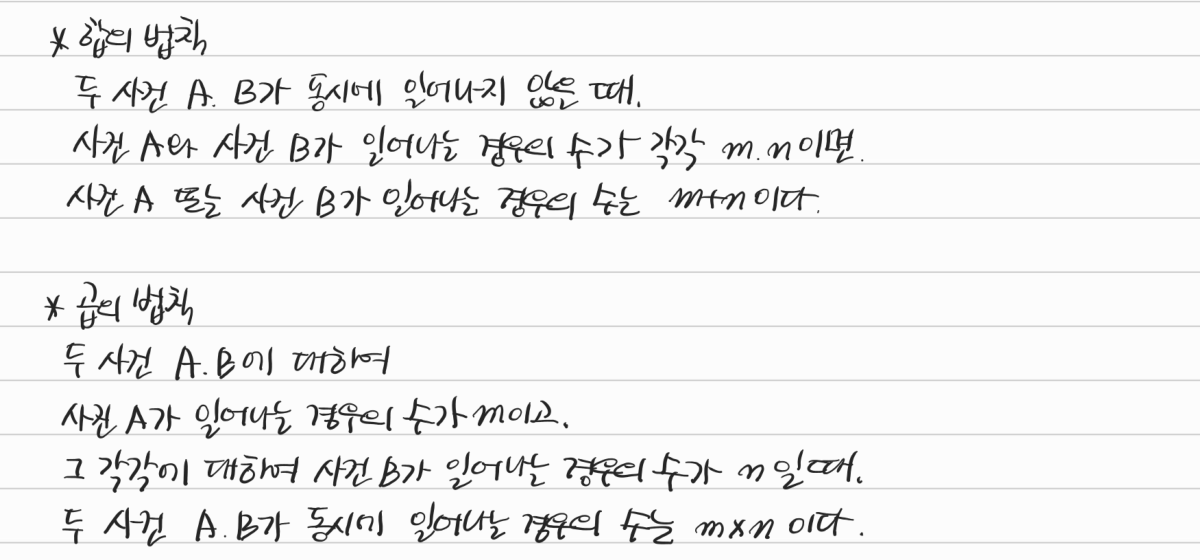 * 합의 법칙
두 사건 A. B가 동시에 일어나지 않은 때.
사건 A와 사건 B가 일어나는 경우의 수가 각각 m.n이면.
사건 A 또는 사건 B가 일어나는 경우의 수는 m+n이다.
* 곱의 법칙
두 사건 A.B에 대하여
사건 A가 일어나는 경우의 수가 m이고.
그 각각에 대하여 사건 B가 일어나는 경우의 수가 n일때.
두 사건 A.B가 동시에 일어나는 경우의 수는 m×n이다.